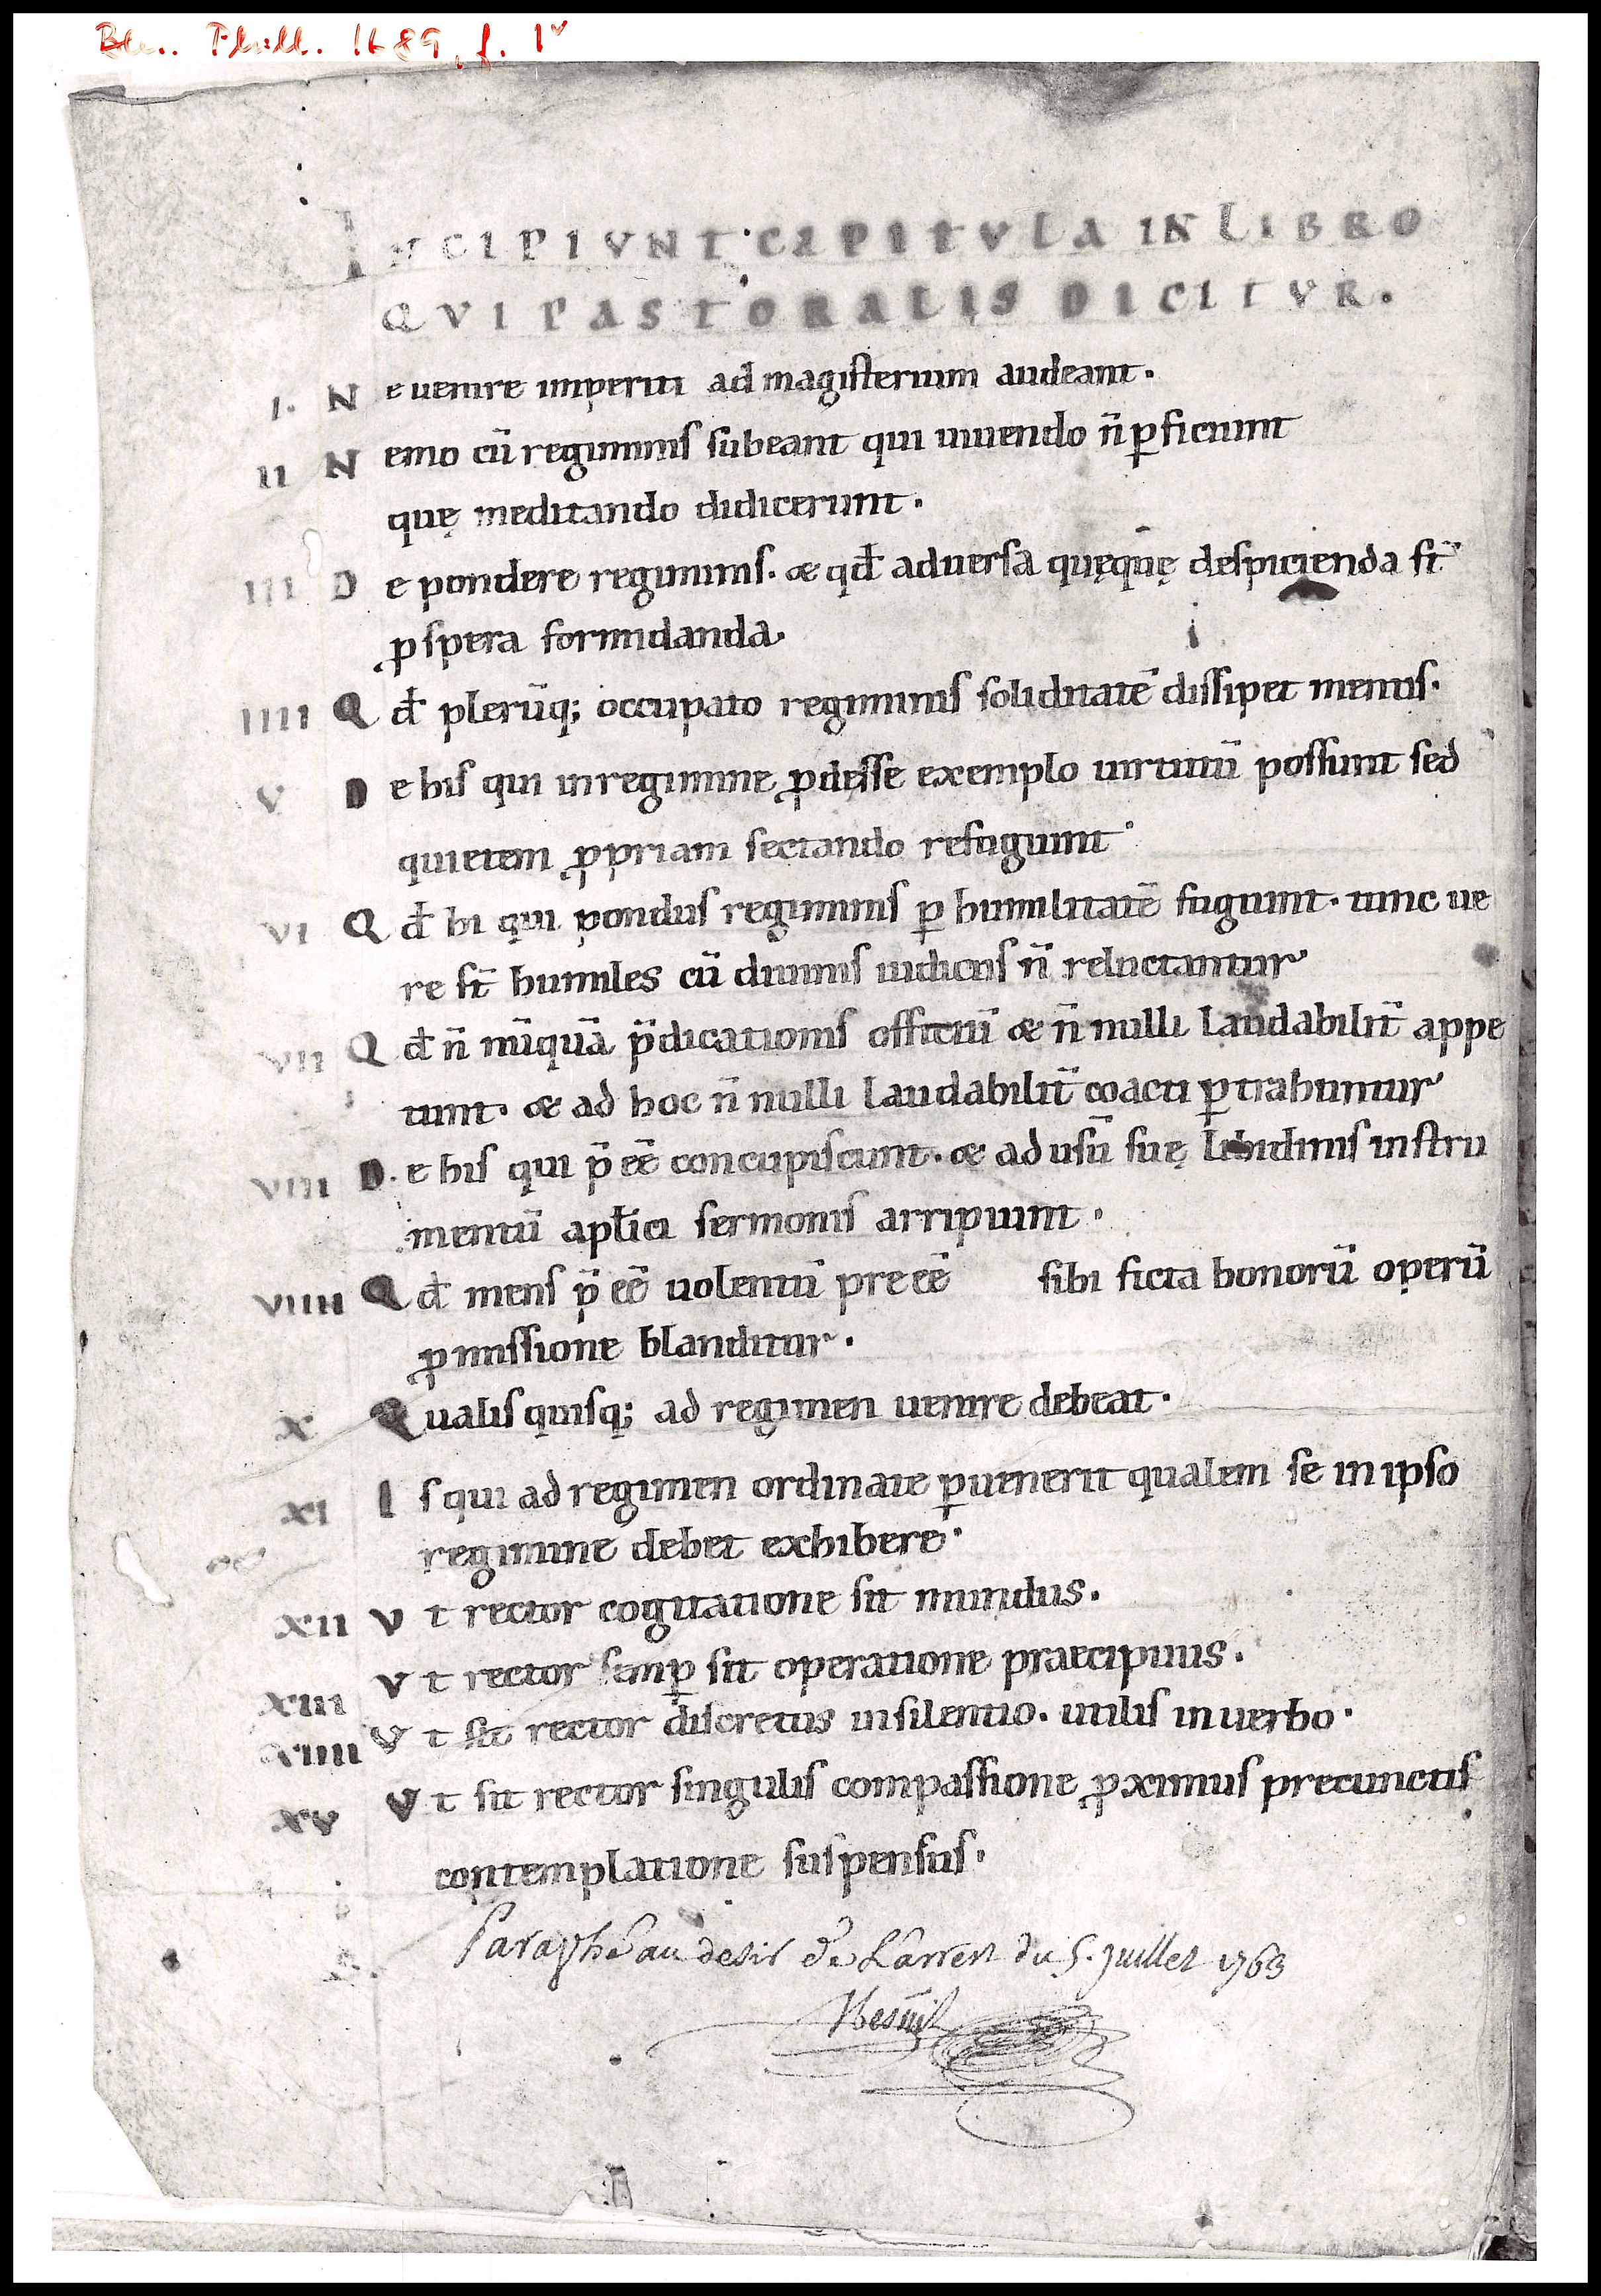 Bln. Phill. 1689, f. 1v
INCIPIVNT CAPITVLA IN LIBRO
QVI PASTORALIS DICITVR.
I. N e uenire imperiti ad magisterium audeant.
II N emo cū regiminis subeant qui uiuendo n̄ ꝑficiunt
quę meditando didicerunt.
III D e pondere regiminis. & qđ aduersa quęquę despicienda st̄
ꝓspera formidanda.
IIII Q đ plerūq; occupato regiminis soliditatē dissipet mentis.
V D e his qui in regimine ꝓdesse exemplo uirtutū possunt sed
quietem ꝓpriam sectando refugiunt.
VI Q đ hi qui pondus regiminis ꝑ humilitatē fugiunt. tunc ue
re st̄ humiles cū diuinis iudiciis n̄ reluctantur
VII Q đ n̄ nūquā p̄dicationis officiū & n̄ nulli laudabilit̄ appe
tunt. & ad hoc n̄ nulli laudabilit̄ coacti ꝑtrahuntur
VIII D. e his qui p̄ eē concupiscunt. & ad usū suę libidinis instru
mentū apłici sermonis arripiunt.
VIIII Q đ mens p̄ eē uolentū pre eē sibi ficta bonorū operū
ꝓmissione blanditur.
X Q ualis quisq; ad regimen uenire debeat.
XI I s qui ad regimen ordinate ꝑuenerit qualem se in ipso
regimine debet exhibere.
XII V t rector cogitatione sit mundus.
XIII V t rector semꝑ sit operatione praecipuus.
XIIII V t sit rector discretus in silentio. utilis in uerbo.
XV V t sit rector singulis compassione ꝓximus precunctis
contemplatione suspensus.
Paraphé au desir de L'arrest du 5. juillet 1763
Mesnil